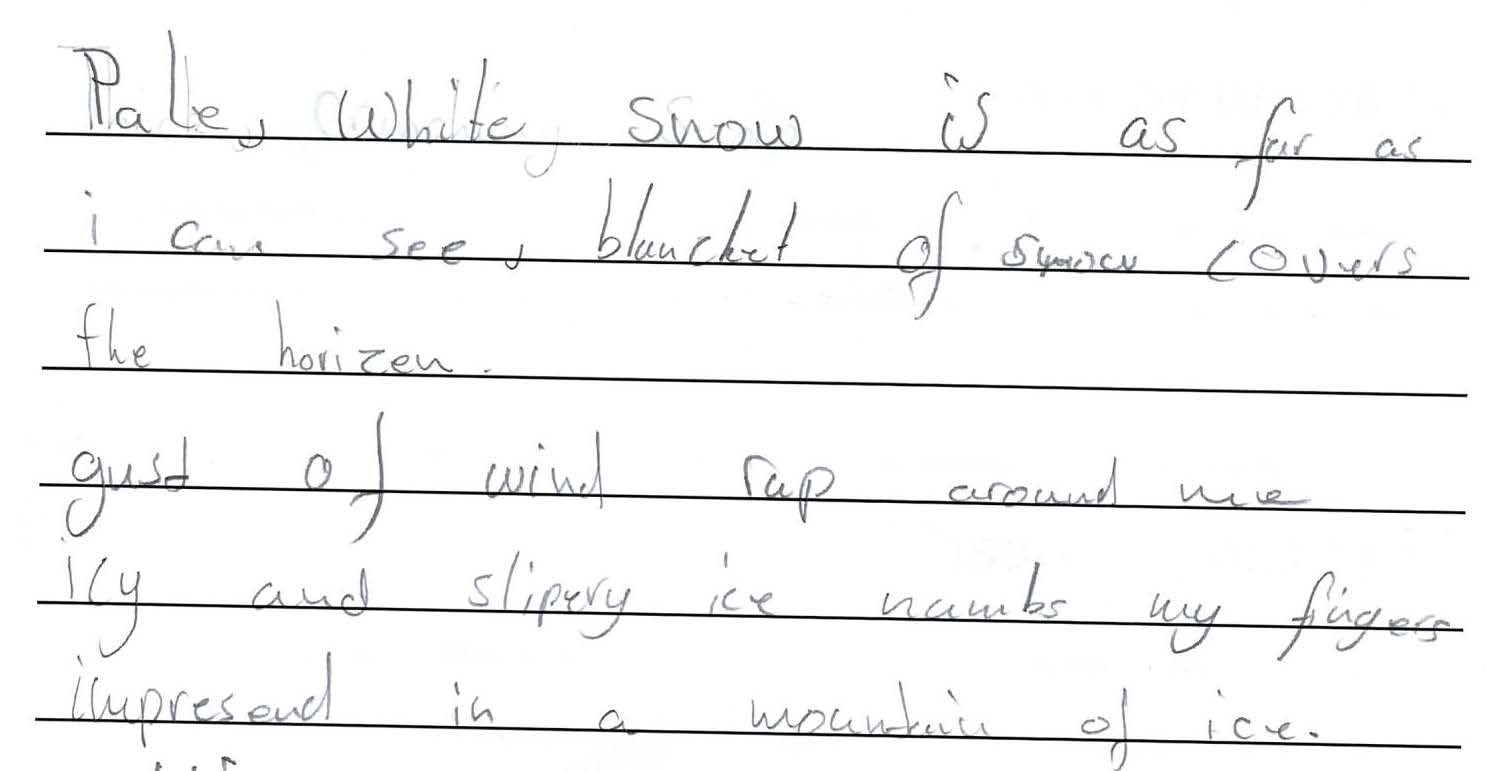 Pale, white snow is as far as
i can see, blancket of snow covers
the horizen.
gust of wind rap around me
icy and slipery ice numbs my fingers
impresend in a mountain of ice.